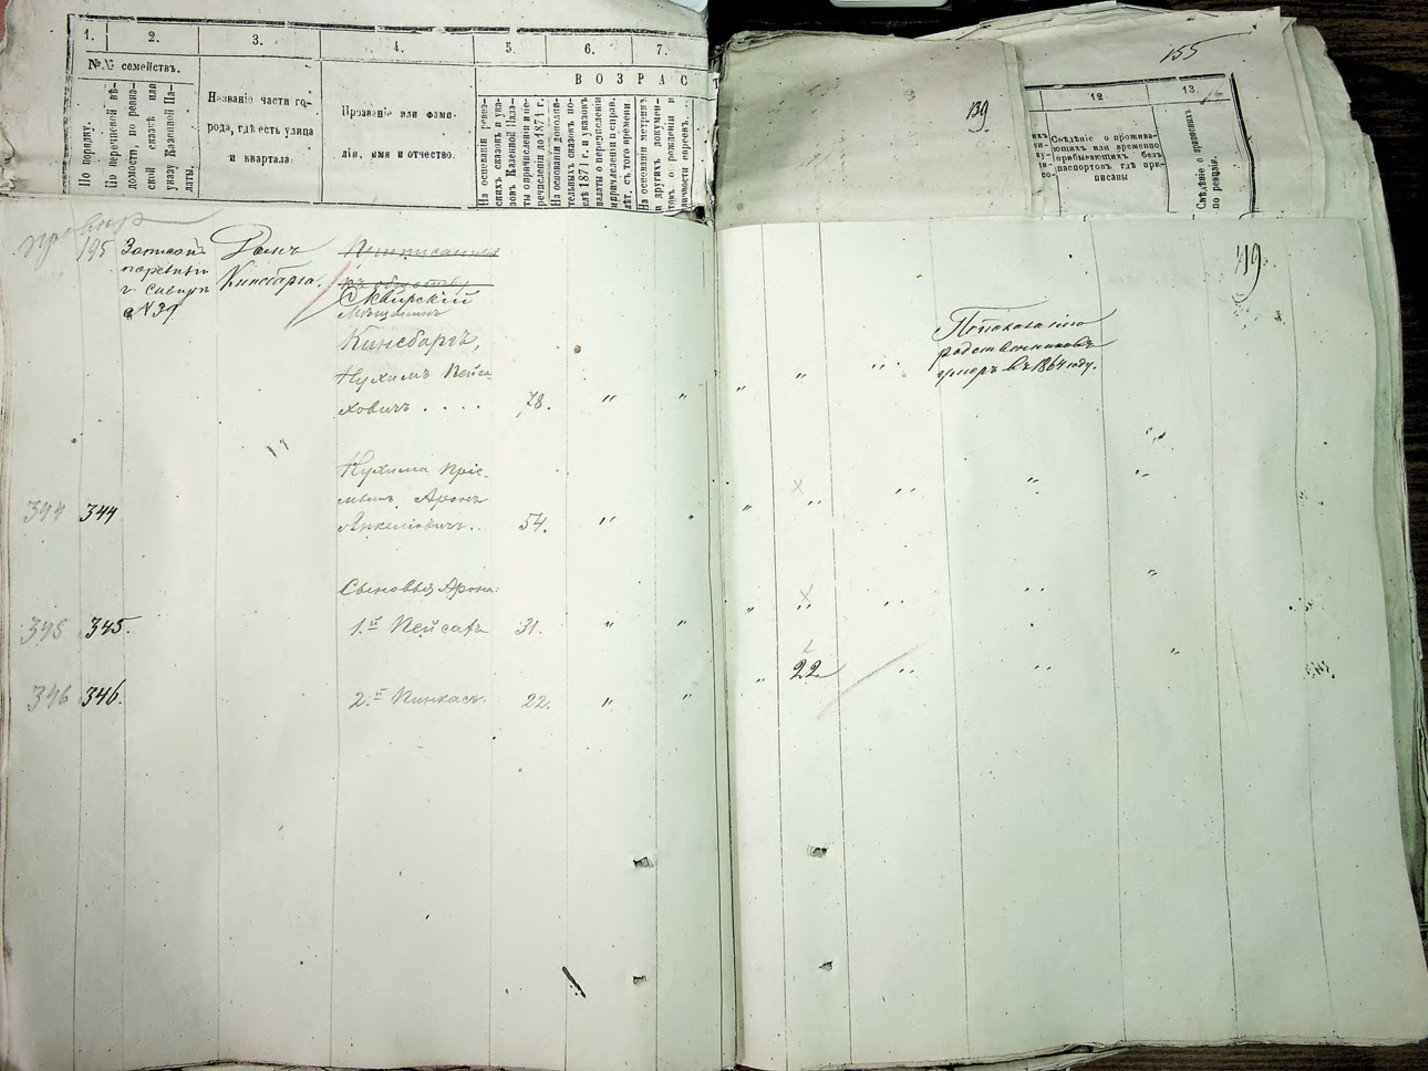 1. 2. 3. 4. 5. 6. 7.
№№ семействъ.
По порядку.
По перечневой вѣдомости, по ревизской сказкѣ или указу Казенной Палаты.
Названіе части города, гдѣ есть улица и квартала
Прозваніе или фамилія, имя и отчество.
ВОЗРАСТ
На основаніи ревизскихъ сказокъ и указовъ Казенной Палаты о причисленіи и перечисленіи до 1871 г.
На основаніи дополнительныхъ сказокъ послѣ 1871 г. и указовъ палаты о перечисленіи и причисленіи и справ. лѣт. съ того времени.
На основаніи метрикъ и другихъ документовъ о рожденіи и личности евреевъ.
155
139
12 13.
Свѣдѣніе о проживающихъ или временно прибывающихъ безъ паспортовъ гдѣ приписаны
Свѣдѣніе о приписныхъ по ревизіи.
119.
195
г. Сквиры
№ 39
Домъ
Кинсбарга.
Неприписанные
къ обществу
Сквирскій
Мѣщанинъ
Кинсбаргъ,
Нухимъ Пейса-
ховичъ . . . . 78. " "
По показанію
родственниковъ
умеръ въ 1864 году.
Нухима пріе-
мышъ Аронъ
344 344 Анкелювичъ.. 54. "
Сыновья Арона:
345 345. 1.й Пейсахъ 31. " "
346 346. 2.й Пинкасъ. 22. " " " 22